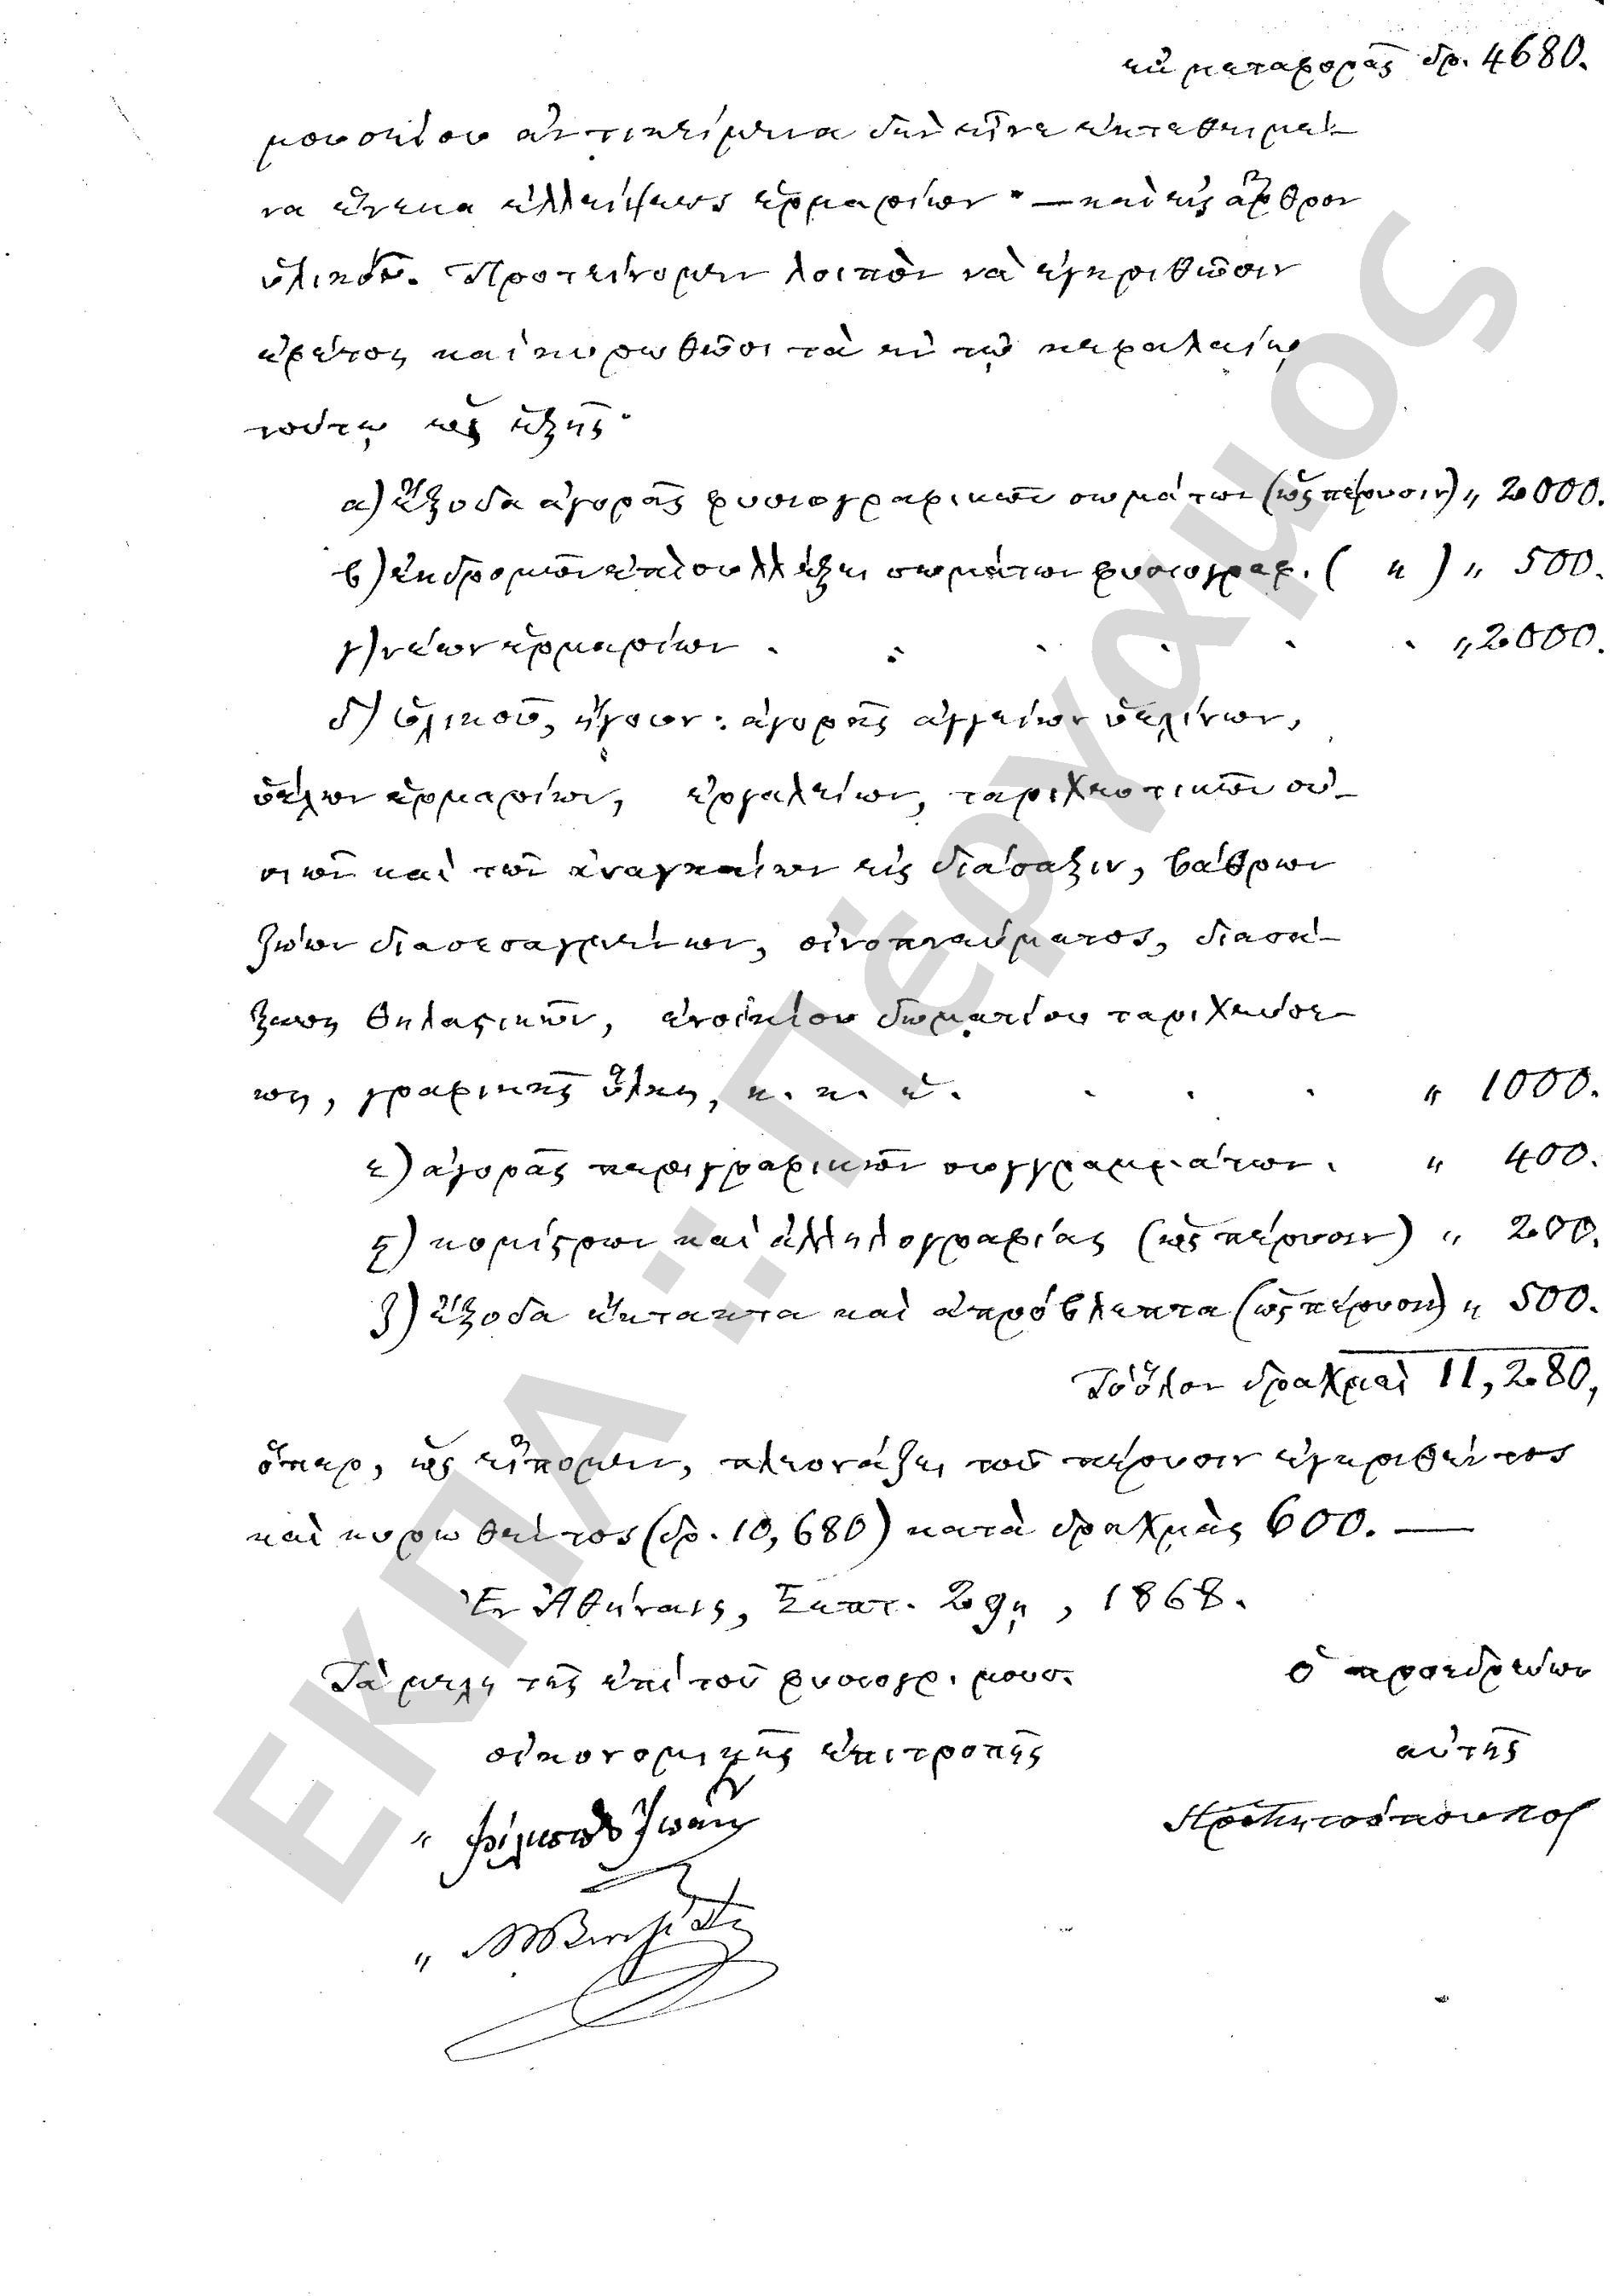 ἐκ μεταφορᾶς δρ. 4680.
μουσείου ἀντικείμενα δὲν εἶνε ἐκτεθειμέ-
να ἕνεκα ἐλλείψεως ἑρμαρίων· — καὶ εἰς ἄρθρον
ὑλικοῦ. Προτείνομεν λοιπὸν νὰ ἐγκριθῶσιν
ἐφέτος καὶ κυρωθῶσι τὰ ἐν τῷ κεφαλαίῳ
τούτῳ ὡς ἑξῆς·
α) ἔξοδα ἀγορᾶς φυσιογραφικῶν σωμάτων (ὡς πέρυσιν) „ 2000.
β) ἐκδρομῶν ἐπὶ συλλέξει σωμάτων φυσιογραφ. ( „ ) „ 500.
γ) νέων ἑρμαρίων . . . . . . „ 2000.
δ) ὑλικοῦ, ἤγουν: ἀγορᾶς ἀγγείων ὑελίνων,
ὑέλων ἑρμαρίων, ἐργαλείων, ταριχευτικῶν οὐ-
σιῶν καὶ τῶν ἀναγκαίων εἰς διάταξιν, βάθρων
ζώων διατεταγμένων, οἰνοπνεύματος, διατά-
ξεως θηλαστικῶν, ἐνοικίου δωματίου ταριχεύσε-
ως, γραφικῆς ὕλης, κ. κ. ἑ. . . . „ 1000.
ε) ἀγορᾶς περιγραφικῶν συγγραμμάτων. „ 400.
ϛ) κομίστρων καὶ ἀλληλογραφίας (ὡς πέρυσιν) „ 200.
ζ) ἔξοδα ἔκτακτα καὶ ἀπρόβλεπτα (ὡς πέρυσιν) „ 500.
Τὸ ὅλον δραχμαὶ 11,280,
ὅπερ, ὡς εἴπομεν, πλεονάζει τοῦ πέρυσιν ἐγκριθέντος
καὶ κυρωθέντος (δρ. 10,680) κατὰ δραχμὰς 600. —
Ἐν Ἀθήναις, Σεπτ. 29ῃ, 1868.
Τὰ μέλη τῆς ἐπὶ τοῦ φυσιογρ. μουσ. ὁ προεδρεύων
οἰκονομικῆς ἐπιτροπῆς αὐτῆς
ΕΚΠΑ :: Πέργαμος